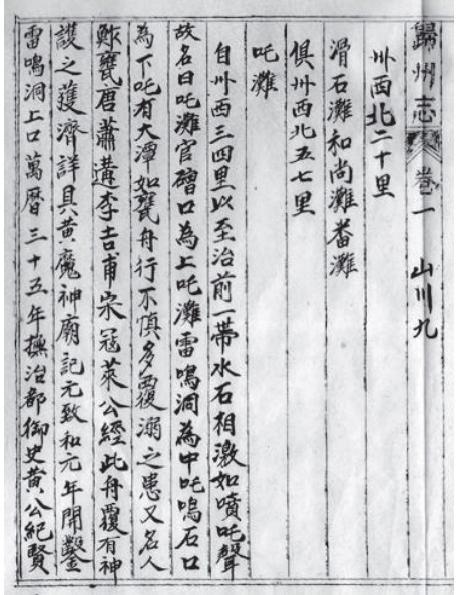 歸州志 卷一 山川九
州西北二十里
滑石灘和尚灘番灘
俱州西北五七里
吒灘
自州西三四里以至治前一帶水石相激如噴吒聲
故名曰吒灘官磳口為上吒灘雷鳴洞為中吒嗚石口
為下吒有大潭如甕舟行不慎多覆溺之患又名人
鮓甕唐蕭遘李吉甫宋冦萊公經此舟覆有神
護之䕶濟詳具黄魔神廟記元致和元年開鑿
雷鳴洞上口萬曆三十五年撫治都御史黄公紀賢